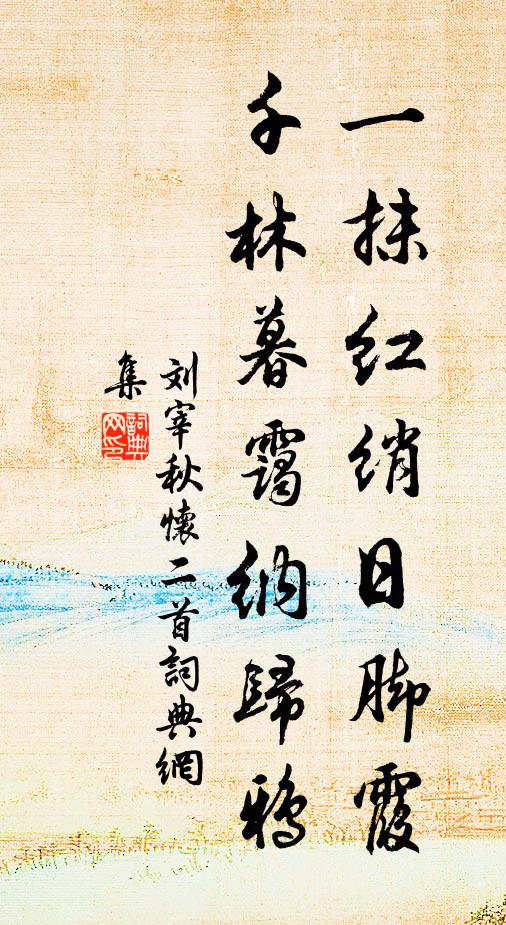 一抹红绡日脚霞
千林暮霭纳归鸦
刘宰秋怀二首詞典網
集
詞典
网印